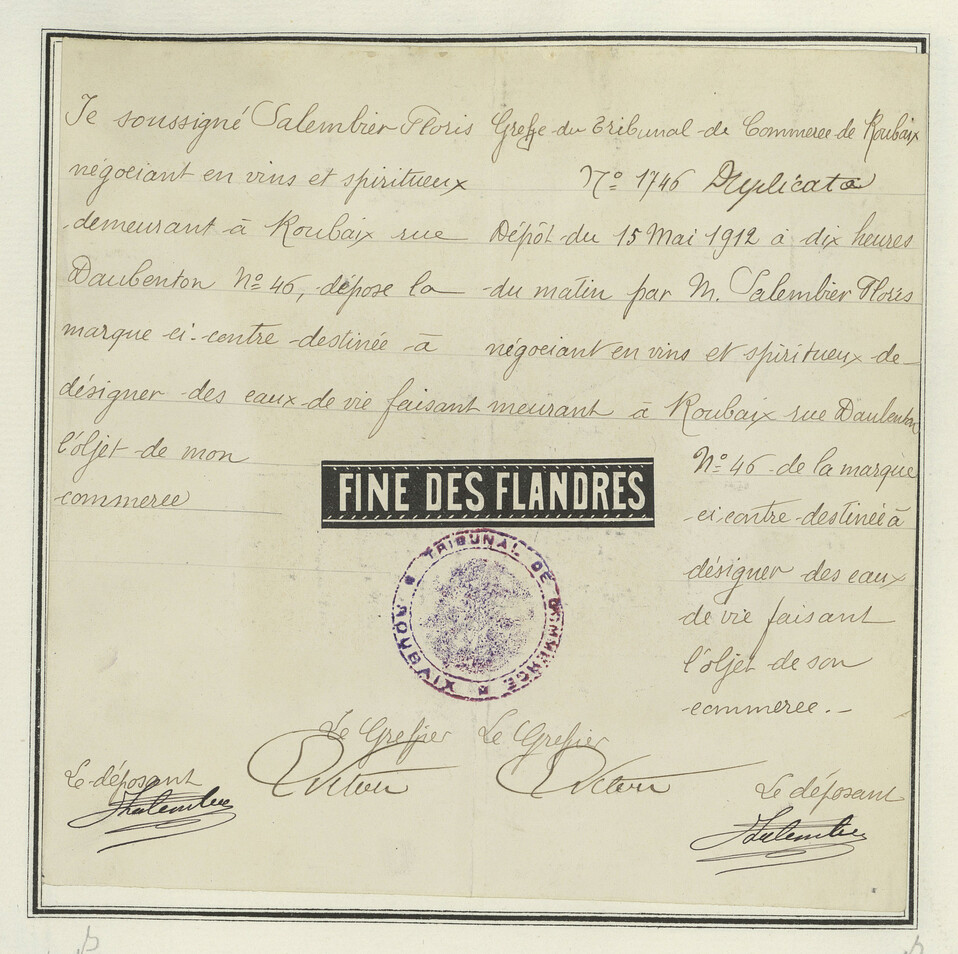 Je soussigné Salembier Floris
négociant en vins et spiritueux
demeurant à Roubaix rue
Daubenton N° 46, dépose la
marque ci-contre destinée à
désigner des eaux de vie faisant
l'objet de mon
commerce
Greffe du Tribunal de Commerce de Roubaix
N° 1746 Duplicata
Dépôt du 15 Mai 1912 à dix heures
du matin par M. Salembier Floris
négociant en vins et spiritueux de-
meurant à Roubaix rue Daubenton
N° 46 de la marque
ci contre destinée à
désigner des eaux
de vie faisant
l'objet de son
commerce. -
FINE DES FLANDRES
TRIBUNAL DE COMMERCE ROUBAIX
Le Greffier
Le Greffier
Le déposant
Salembier
Le déposant
Salembier